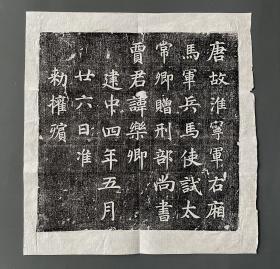 唐故淮寧軍右廂
馬軍兵馬使試太
常卿贈刑部尚書
賈君諱樂卿
建中四年五月
廿六日准
勑權殯